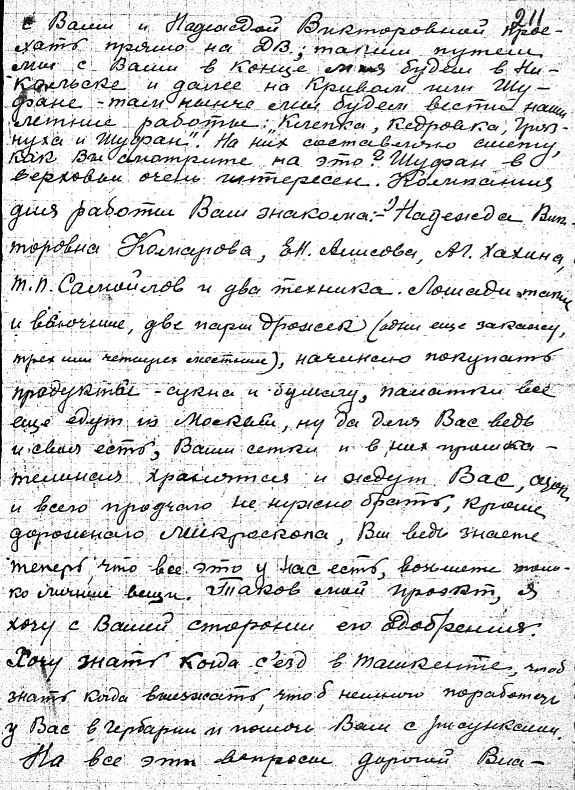 211
с Вами и Надеждой Викторовной прое-
хать прямо на ДВ; таким путем
мы с Вами в конце мая будем в Ни-
кольске и далее на Кривой или Шу-
фане - там нынче мы будем вести наши
летние работы: "Клепка, Кедровка,
нуха и Шуфан"! На них составлено смету,
как Вы смотрите на это? Шуфан в
верховьи очень интересен. Компания
для работы Вам знакома: - Надежда Вик-
торовна Комарова, Е.Н. Алисова, А.Г. Хахина,
Т.П. Самойлов и два техника. Лошади
и вьючные, две пары дрожек (одни еще закажу,
трех или четырех местные), начинаю покупать
продукты - сукна и бумагу, палатки все
еще едут из Москвы, ну да для Вас ведь
и своя есть, Ваши сетки и в них прошка-
хранятся и ждут Вас,
и всего прочаго не нужно брать, кроме
дорожнаго микроскопа, Вы ведь знаете
теперь, что все это у нас есть, возьмете толь-
ко личные вещи. Таков мой проэкт, я
хочу с Вашей стороны его одобрения.
Хочу знать когда с'езд в Ташкенте, чтоб
знать когда выезжать, чтоб немного поработать
у Вас в гербарии и помочь Вам с рисунками.
На все эти вопросы дорогой Вла-